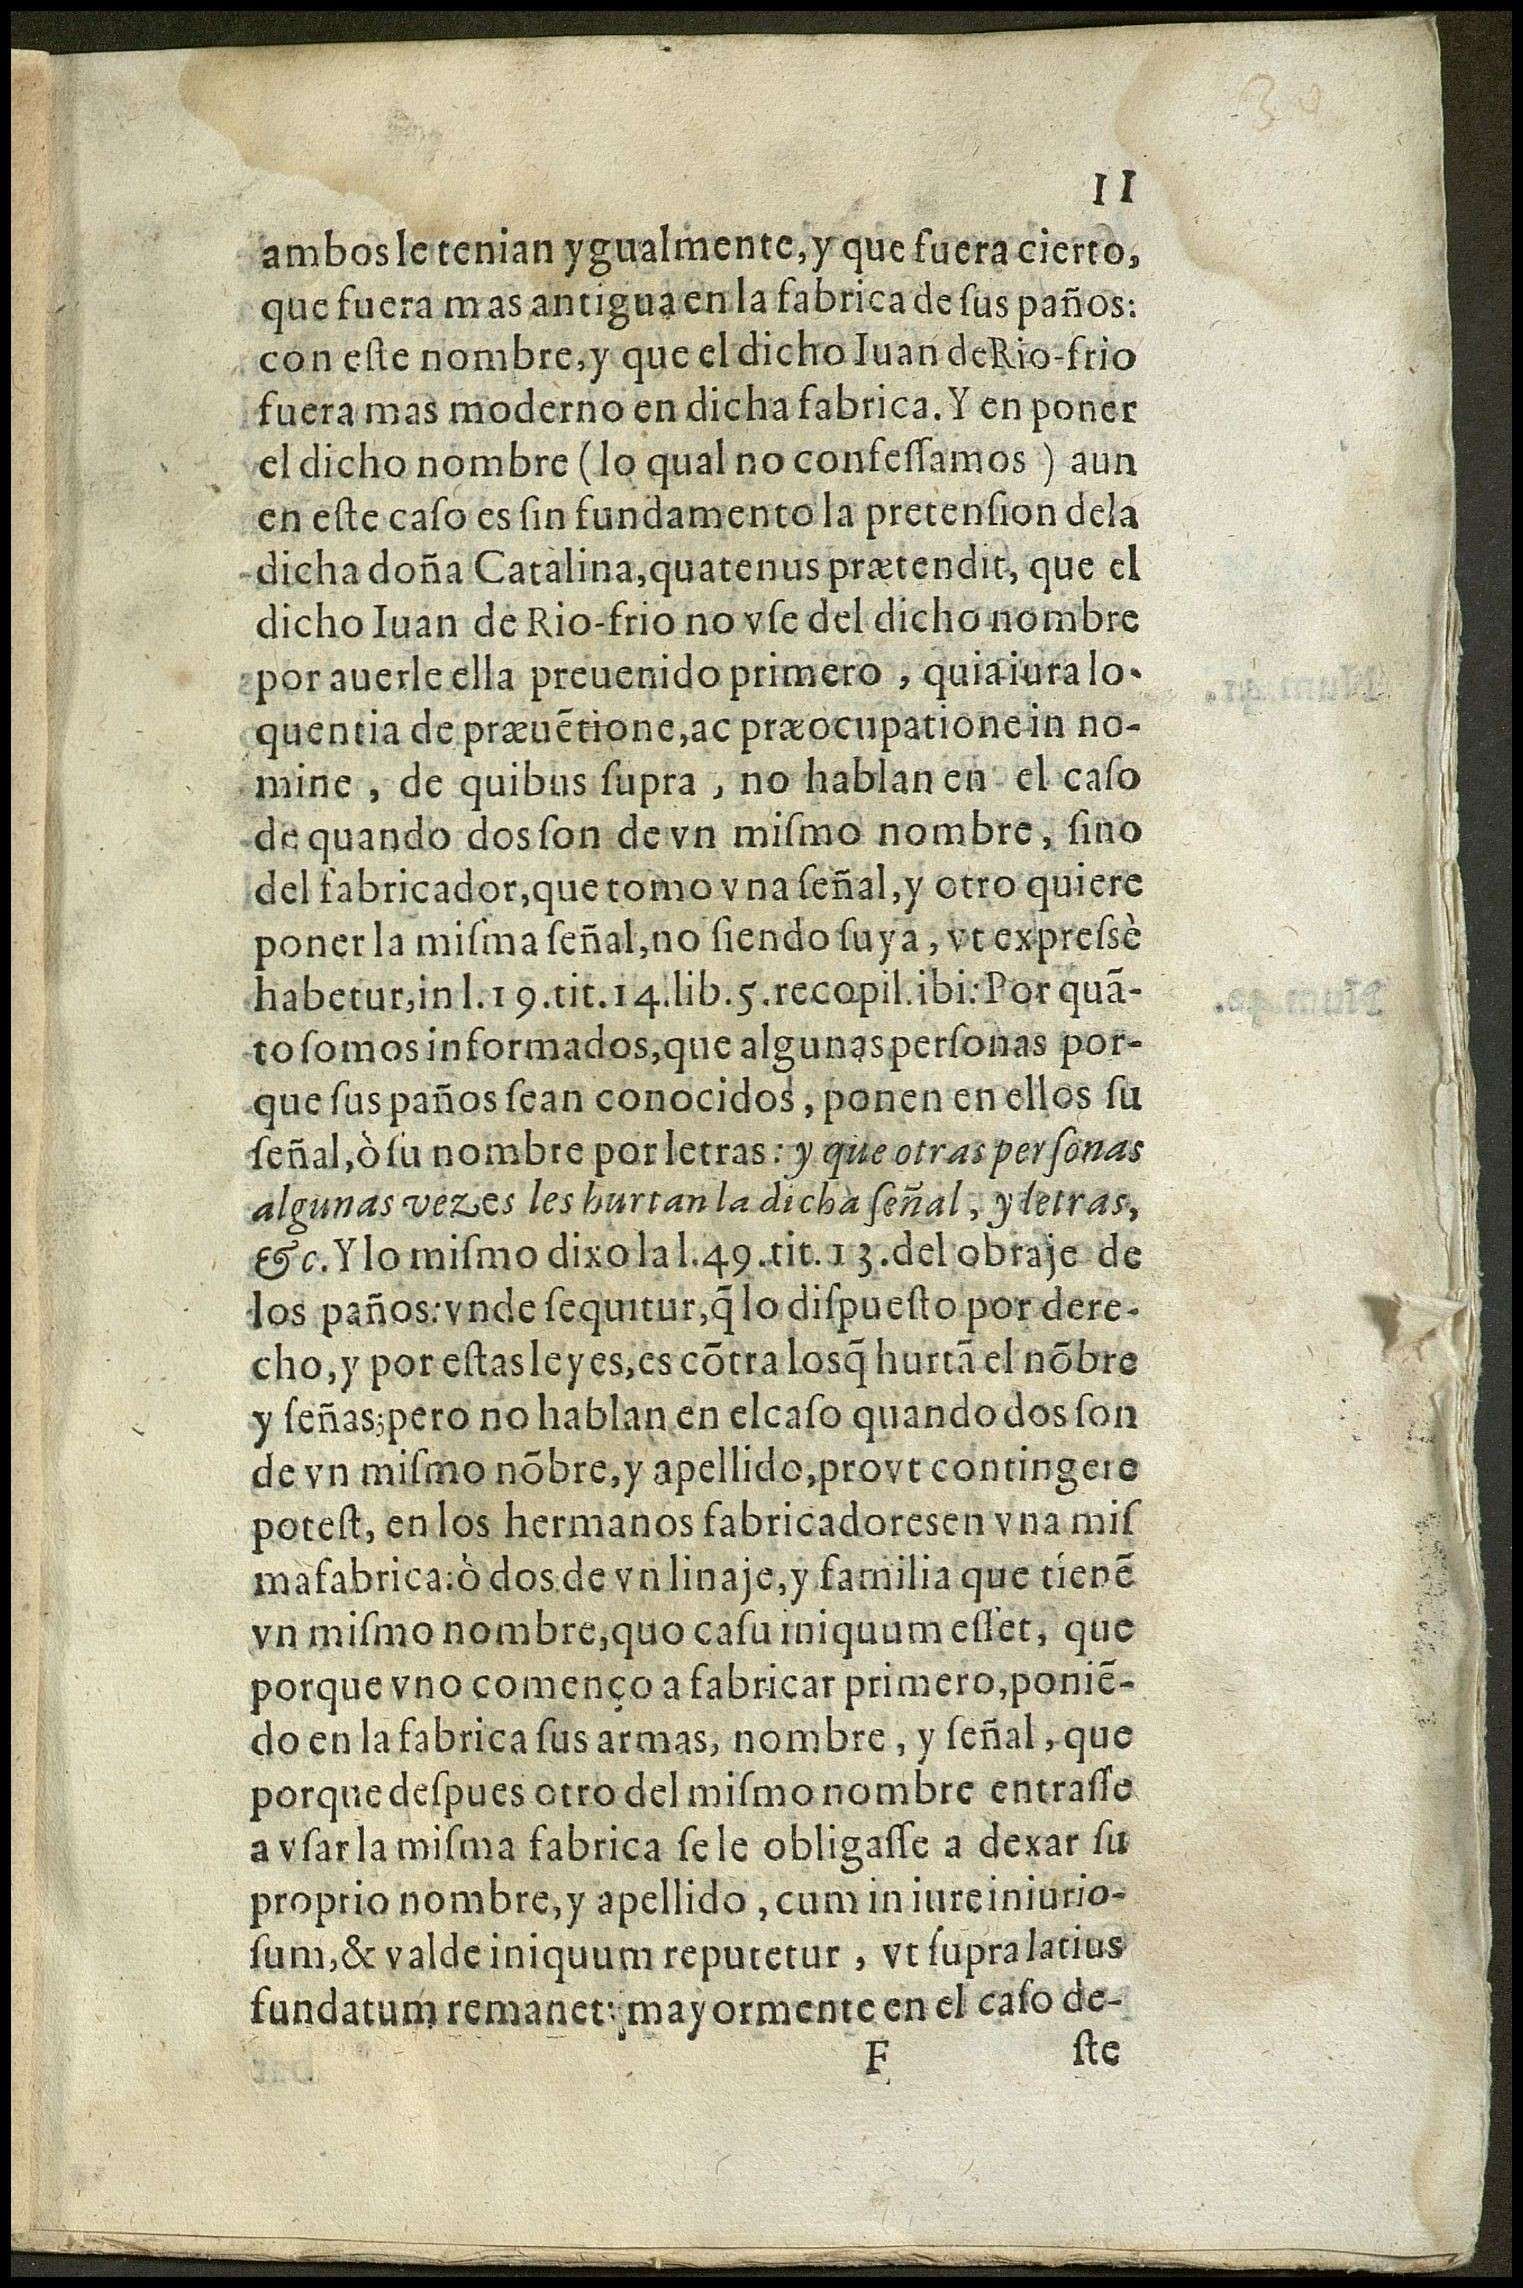 30
11
ambos le tenian ygualmente, y que fuera cierto,
que fuera mas antigua en la fabrica de ſus paños:
con eſte nombre, y que el dicho Iuan de Rio-frio
fuera mas moderno en dicha fabrica. Y en poner
el dicho nombre (lo qual no confeſſamos) aun
en eſte caſo es ſin fundamento la pretenſion dela
dicha doña Catalina, quatenus prætendit, que el
dicho Iuan de Rio-frio no vſe del dicho nombre
por auerle ella preuenido primero, quia iura lo-
quentia de præuẽtione, ac præocupatione in no-
mine, de quibus ſupra, no hablan en el caſo
de quando dos ſon de vn miſmo nombre, ſino
del fabricador, que tomo vna ſeñal, y otro quiere
poner la miſma ſeñal, no ſiendo ſuya, vt expreſsè
habetur, in l. 19. tit. 14. lib. 5. recopil. ibi: Por quã-
to ſomos informados, que algunas perſonas por-
que ſus paños ſean conocidos, ponen en ellos ſu
ſeñal, ò ſu nombre por letras: y que otras perſonas
algunas vezes les hurtan la dicha ſeñal, y letras,
&c. Y lo miſmo dixo la l. 49. tit. 13. del obraje de
los paños: vnde ſequitur, q̃ lo diſpueſto por dere-
cho, y por eſtas leyes, es cõtra los q̃ hurtã el nõbre
y ſeñas; pero no hablan en el caſo quando dos ſon
de vn miſmo nõbre, y apellido, provt contingere
poteſt, en los hermanos fabricadores en vna miſ
ma fabrica: ò dos de vn linaje, y familia que tienẽ
vn miſmo nombre, quo caſu iniquum eſſet, que
porque vno començo a fabricar primero, poniẽ-
do en la fabrica ſus armas, nombre, y ſeñal, que
porque deſpues otro del miſmo nombre entraſſe
a vſar la miſma fabrica ſe le obligaſſe a dexar ſu
proprio nombre, y apellido, cum in iure iniurio-
ſum, & valde iniquum reputetur, vt ſupra latius
fundatum remanet: mayormente en el caſo de-
F ſte